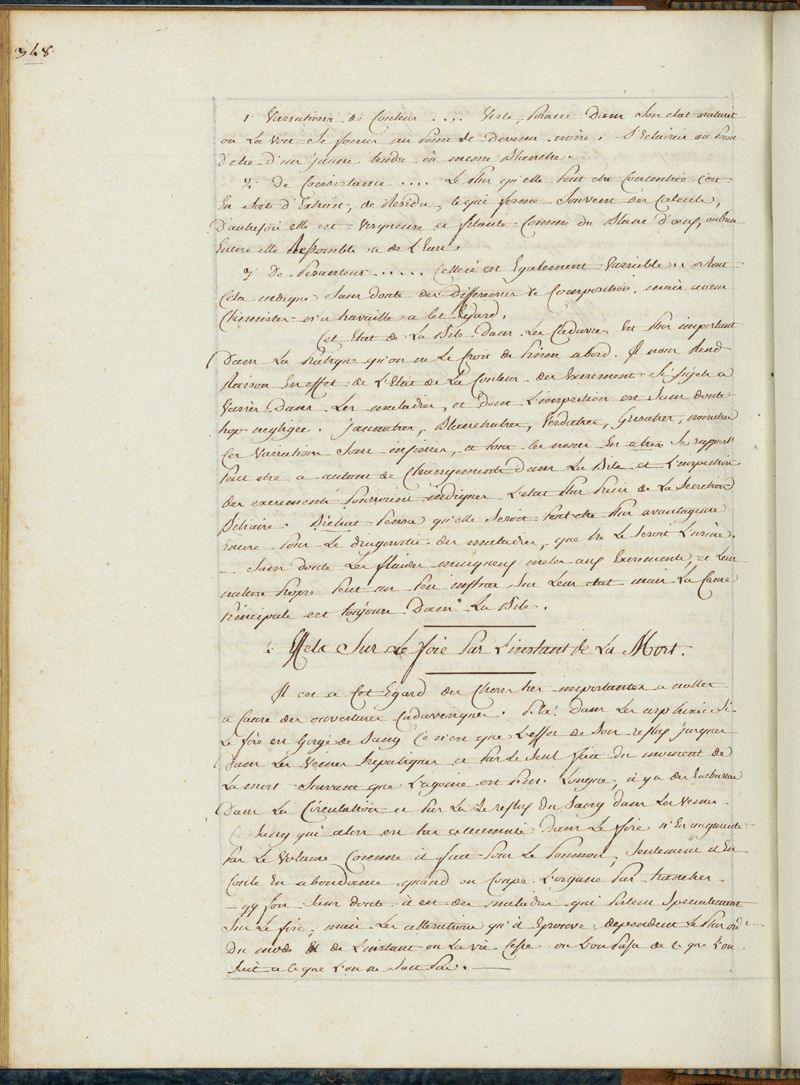 348.
1. Variations de Couleur .... Verte foncée Dans Son etat naturel
on La voit Se foncer au point de Devenir noire. S'eclaircir au point
d'etre d'un jaune tendre ou mesme Blanche.
2. De Consistance .... Le Plus qu'elle Peut etre Concentrée c'est
En Sorte d'Extrait, de Residu, ce qui forme Souvent des Calculs,
D'autrefois elle est Visqueuse et filante Comme du Blanc d'oeuf, ou bien
Encore elle Ressemble a de L'Eau.
3. De Pesanteur ..... Celle ci est Egalement Variable .. or tout
Cela indique Sans doute des Differences de Composition, mais aucun
Chimiste n'a travaillé a Cet Egard.
Cet Etat de La Bile Dans Les Cadavres Est Plus important
Dans La Pratique qu'on ne Le Croit de Prime abord. Il nous Rend
Raison En effet de L'Etat de La Couleur des Excrements Si Sujets a
Varier Dans Les maladies, et Dont L'inspection est Sans doute
trop negligée. Jaunatres, Blanchatres, Verdatres, Grisatres, noiratres
Ces Variations Sont infinies, et tous Les mesmes En atres Se rapportent
Peut etre a autant de Changements Dans La Bile et L'inspection
des excrements Pourroient indiquer L'etat Plus Precis de La Secretion
Biliaire. Bichat Pensa qu'elle Seroit Peut etre Plus avantageuse
encore Pour Le diagnostic des maladies, que ne Le Seroit L'urine.
Sans doute Les fluides muqueux meles aux Excrements, et Leur
nature Propre Peut un Peu influer Sur Leur etat mais La Cause
Principale est toujours Dans La Bile.
Effets Sur Le foie Par L'instant de La Mort.
Il est a Cet Egard des Choses tres importantes a notter
a Cause des ouvertures Cadaveriques. Dans Les asphixies Si
Le foie est Gorgé de Sang Ce n'est que L'effet de Son reflux jusques
Dans Les Veines hepatiques et Par Le Seul fait du moment de
La mort Suivant que L'agonie est Plus Longue, il y a des Embarras
Dans La Circulation et Par La Le reflux du Sang dans Les Veines.
Ce Sang qui alors est tres accumulé Dans Le foie n'En augmente
Pas Le Volume Comme il fait Pour Le Poumon, Seulement il En
Coule En abondance quand on Coupe L'organe Par tranches.
Sans doute il est des maladies qui Portent Specialement
Sur Le foie; mais Les alterations qu'il Eprouve dependent Le Plus
Du mode de L'instant ou La vie Cesse ou L'on Passe de ce que L'on
Sait a ce que L'on ne Sait Pas.